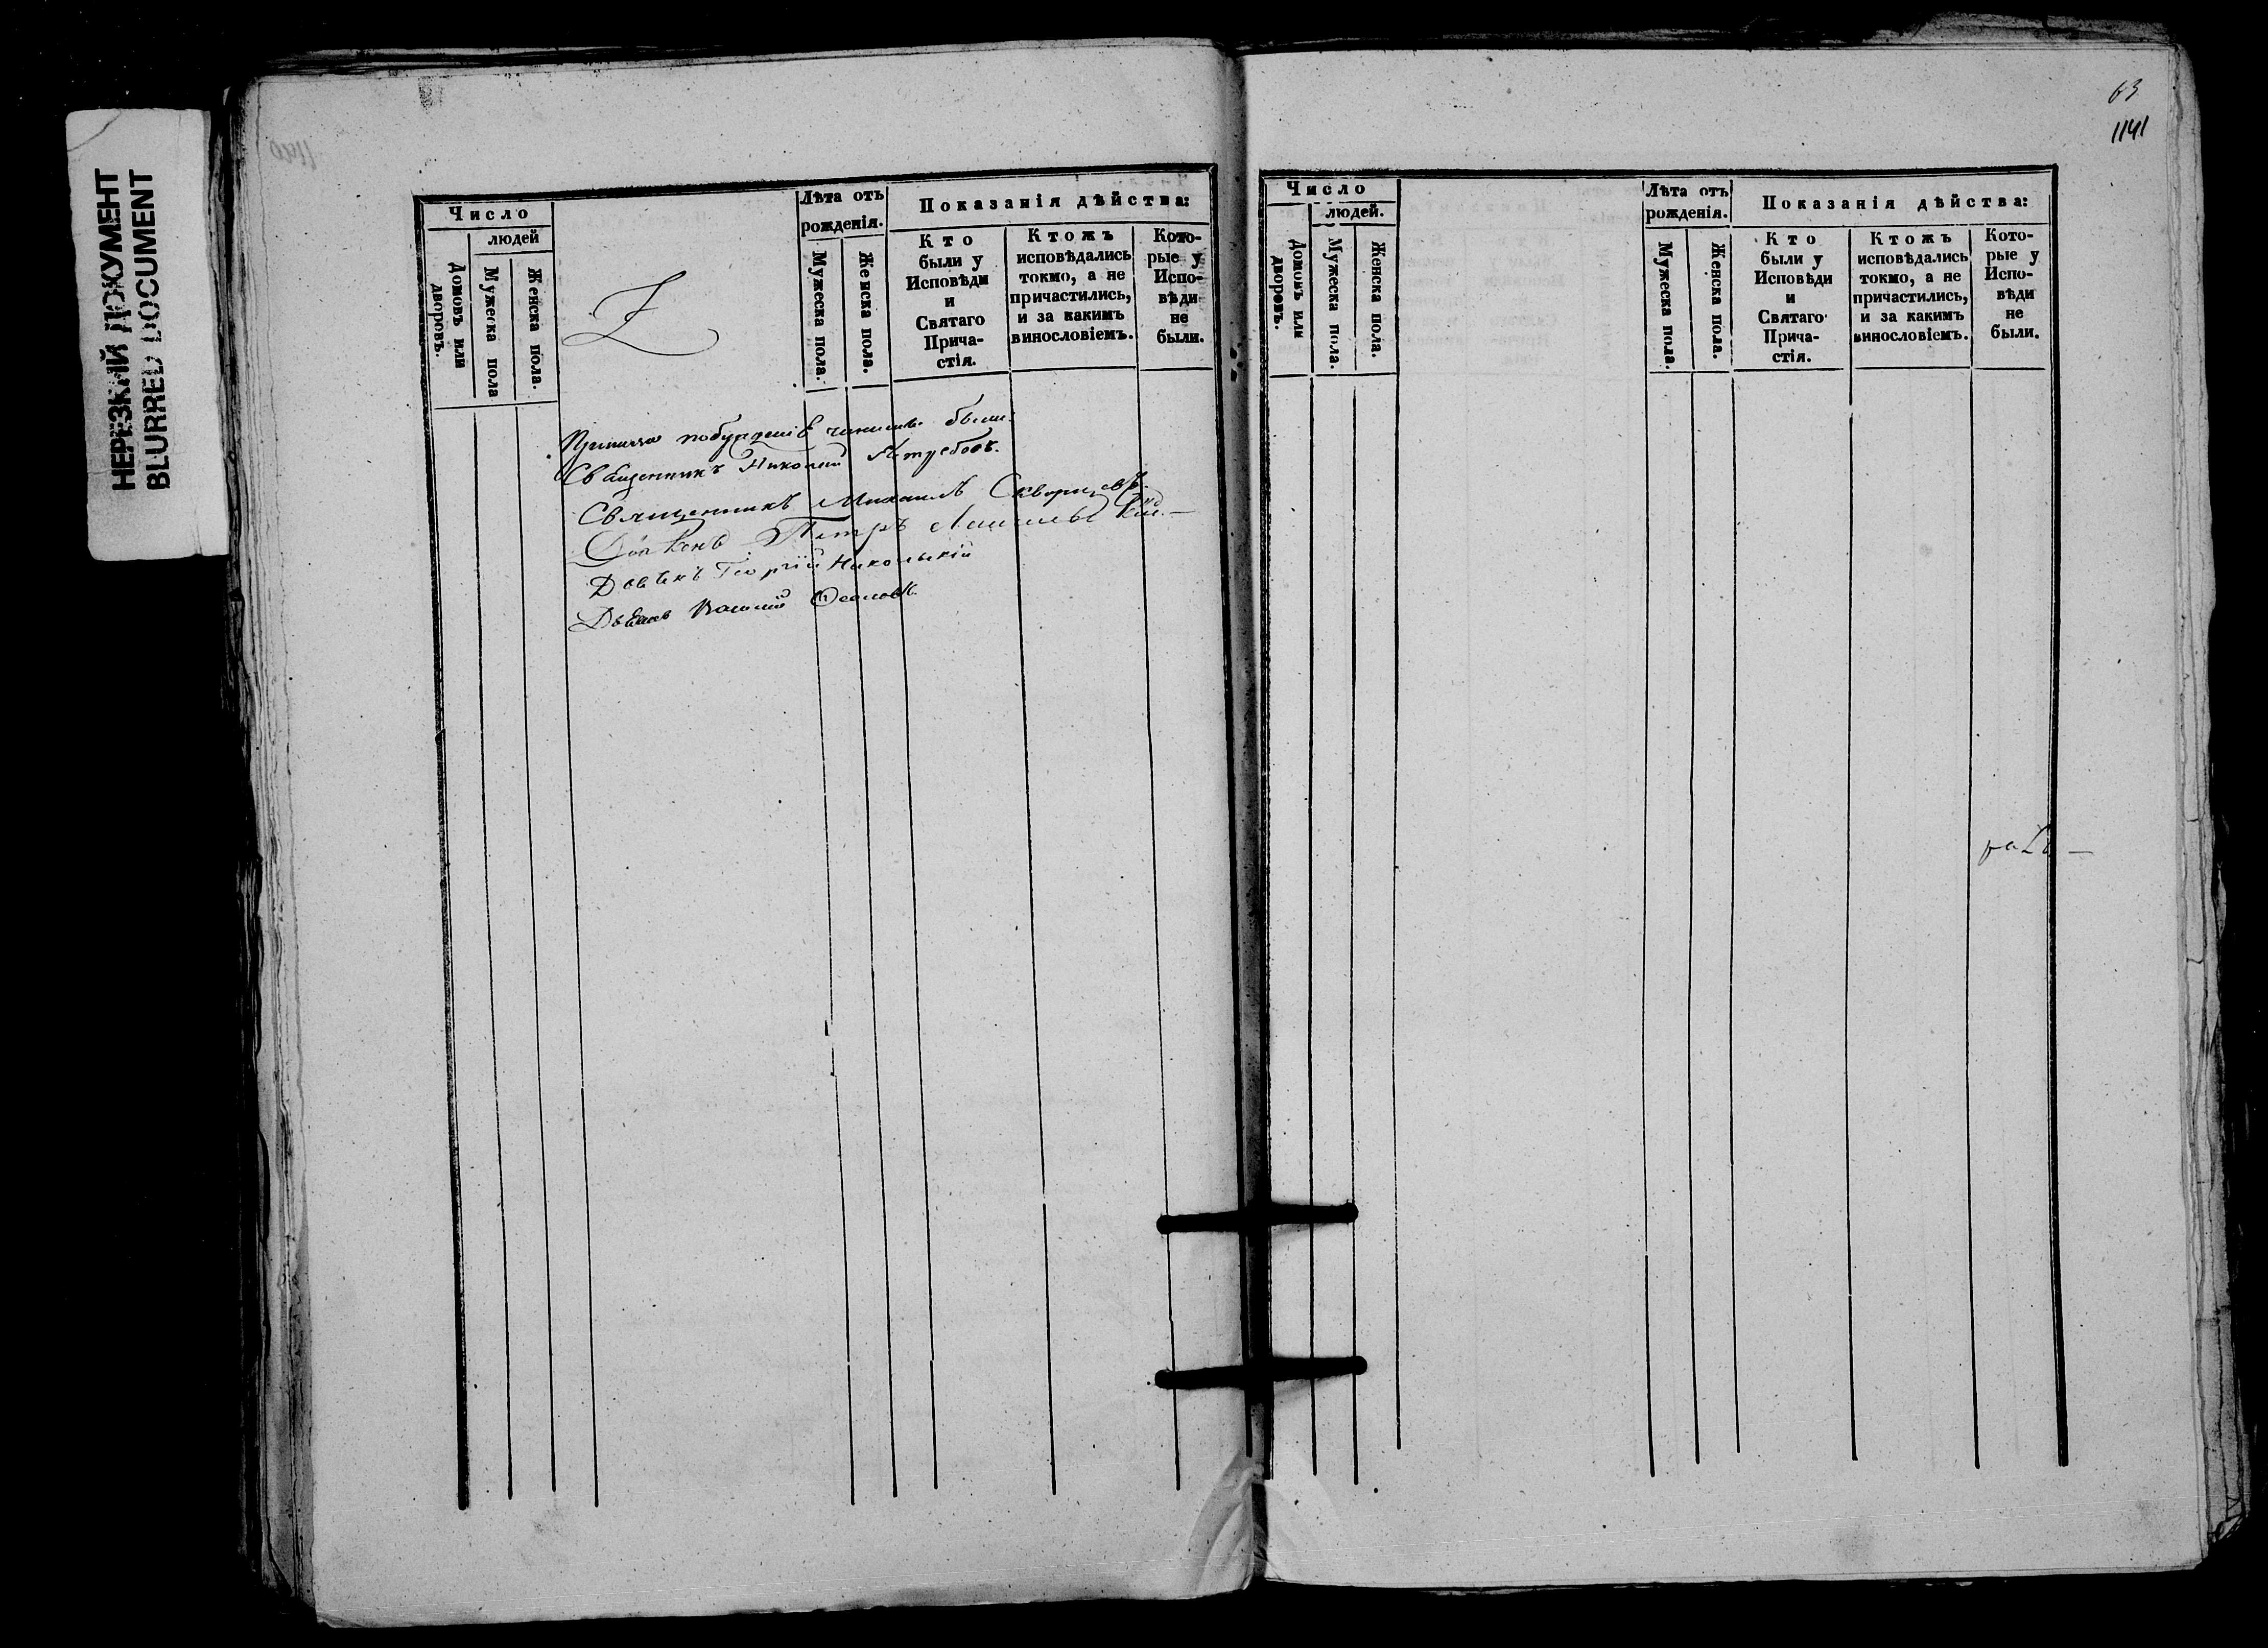 НЕРЕЗКИЙ ДОКУМЕНТ
BLURRED DOCUMENT
Число
людей
Домовъ или дворовъ.
Мужеска пола
Женска пола.
Лѣта отъ рожденія.
Мужеска пола.
Женска пола.
Показанія дѣйства:
Кто были у Исповѣди и Святаго Прича-стія.
Ктожъ исповѣдались токмо, а не причастились, и за какимъ винословіемъ.
Кото-рые у Испо-вѣди не были.
побужденіе чинимо было.
Священникъ Николай Ястребовъ.
Священникъ Михаилъ Скворцовъ.
Діаконъ Петръ
Дьячекъ Георгій Никольскій
Василій
63
1141
Число
людей.
Домовъ или дворовъ.
Мужеска пола.
Женска пола.
Лѣта отъ рожденія.
Мужеска пола.
Женска пола.
Показанія дѣйства:
Кто были у Исповѣди и Святаго Прича-стія.
Ктожъ исповѣдались токмо, а не причастились, и за какимъ винословіемъ.
Кото-рые у Испо-вѣди не были.